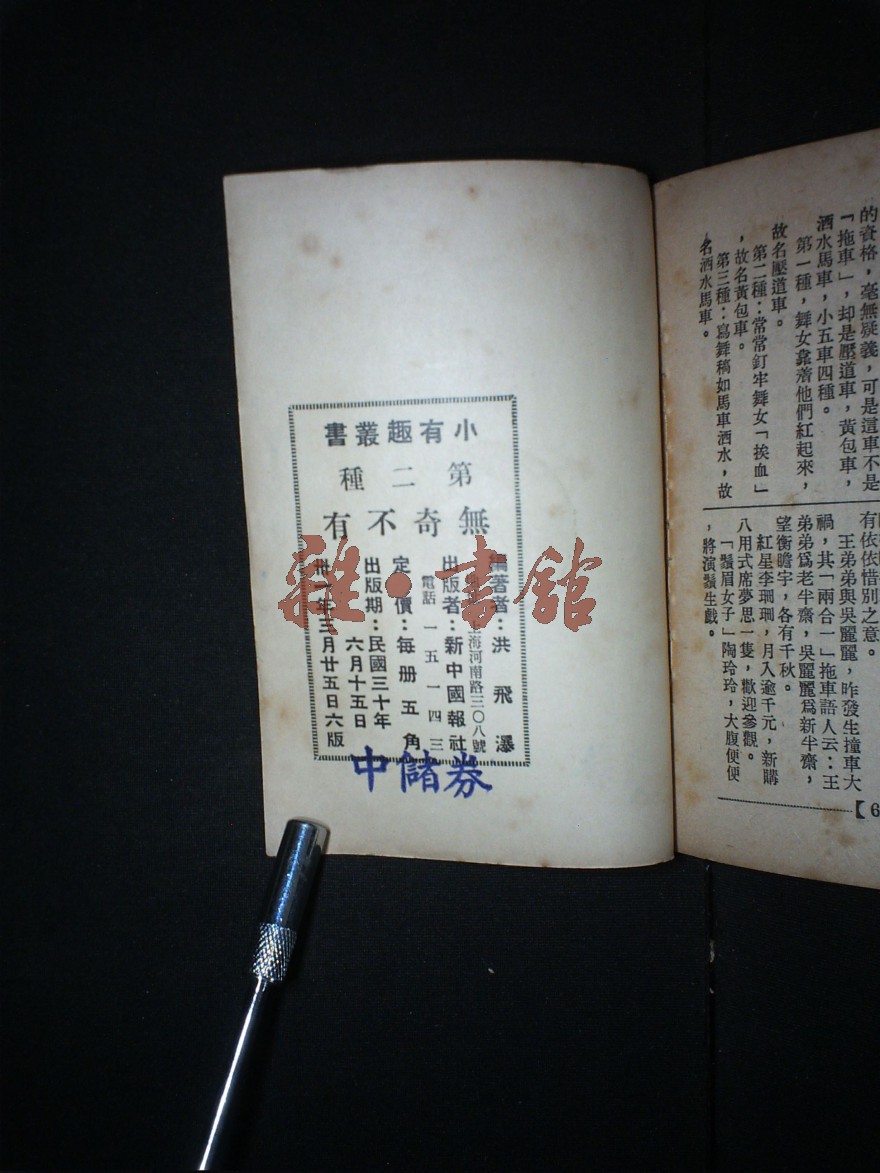 的資格，毫無疑義，可是這車不是
「拖車」，却是壓道車，黃包車，
洒水馬車，小五車四種。
第一種，舞女靠着他們紅起來，
故名壓道車。
第二種：常常釘牢舞女「挨血」
，故名黃包車。
第三種：寫舞稿如馬車洒水，故
名洒水馬車。
有依依惜別之意。
王弟弟與吳麗麗，昨發生撞車大
禍，其「兩合一」拖車語人云：王
弟弟爲老半齋，吳麗麗爲新半齋，
望衡瞻宇，各有千秋。
紅星李珊珊，月入逾千元，新購
八用式席夢思一隻，歡迎參觀。
「鬚眉女子」陶玲玲，大腹便便
，將演鬚生戲。
【6
小有趣叢書
第二種
無奇不有
編著者：洪飛澤
上海河南路三〇八號
出版者：新中國報社
電話 一五一四三
定價：每册五角
出版期：民國三十年
六月十五日
卅一年三月廿五日六版
中儲券
雜·書館